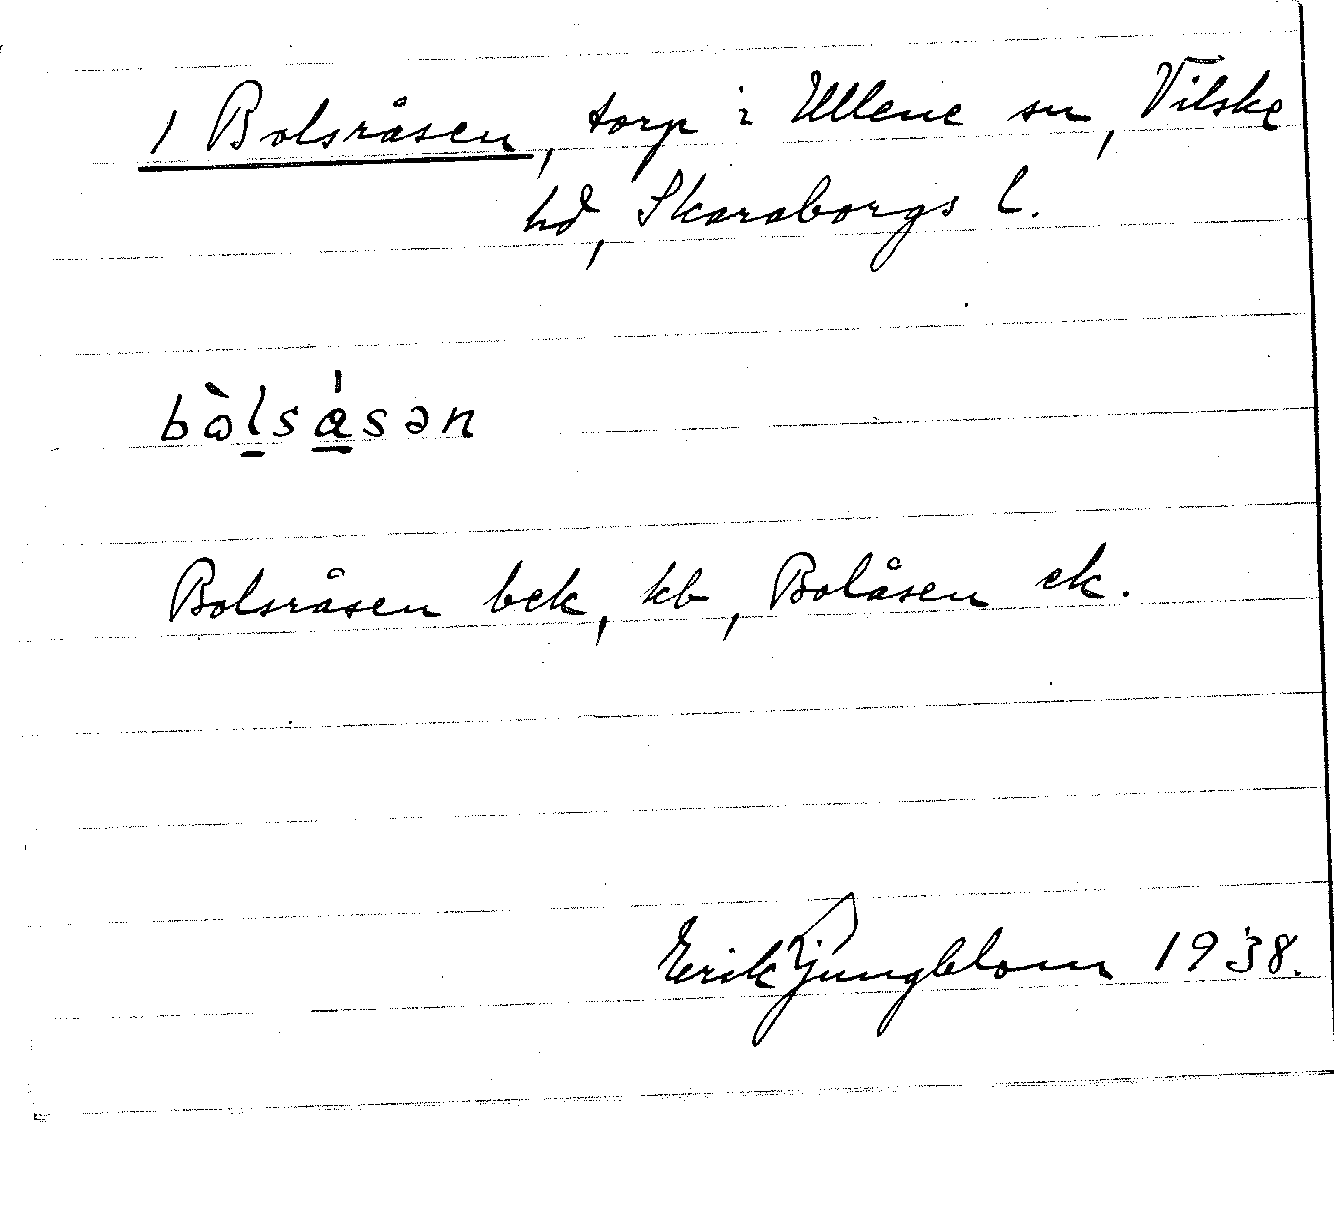 1 Bolsråsen, torp i Ullene sn, Vilske
hd, Skaraborgs l.
bòlsásən
Bolsråsen bek, kb, Bolåsen ek.
Erik Ljungblom 1938.